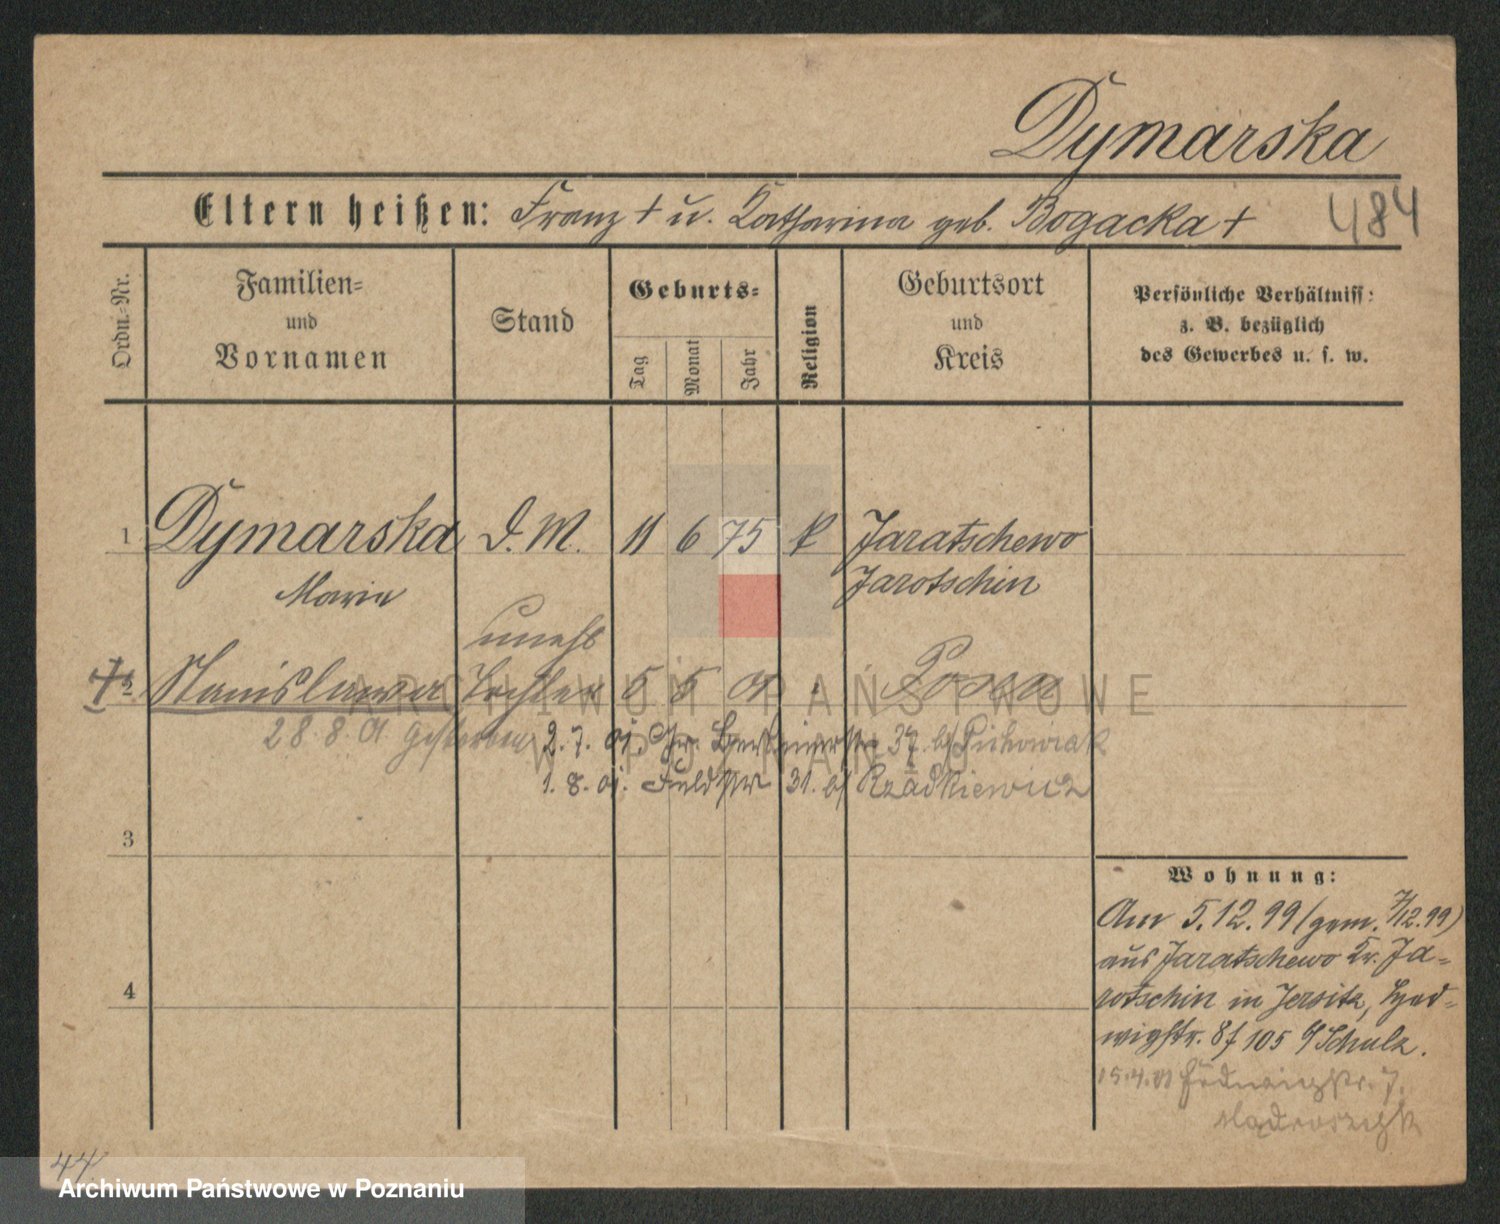 Dymarska
Eltern heißen: Franz † u. Katharina geb. Bogacka †
484
Ordn.-Nr.
Familien-
und
Vornamen
Stand
Geburts-
Tag
Monat
Jahr
Religion
Geburtsort
und
Kreis
Persönliche Verhältniss:
z. B. bezüglich
des Gewerbes u. s. w.
1 Dymarska D. M. 11 6 75 k Jaratschewo
Marie Jarotschin
unehl
† 2 Stanislawa Tochter 5 5 01 Posen
28. 8. 01 gestorben 2. 7. 01. 37 b/ Pichowiak
1. 8. 01. Feldstr 31. b/ Rzadkiewicz
3
4
Wohnung:
Am 5.12.99 (gem. 7/12.99)
aus Jaratschewo Kr. Ja-
rotschin in Jersitz, Hed-
wigstr. 8 f 105 b/ Schulz.
15.4.01 7.
44
ARCHIWUM PAŃSTWOWE
W POZNANIU
Archiwum Państwowe w Poznaniu